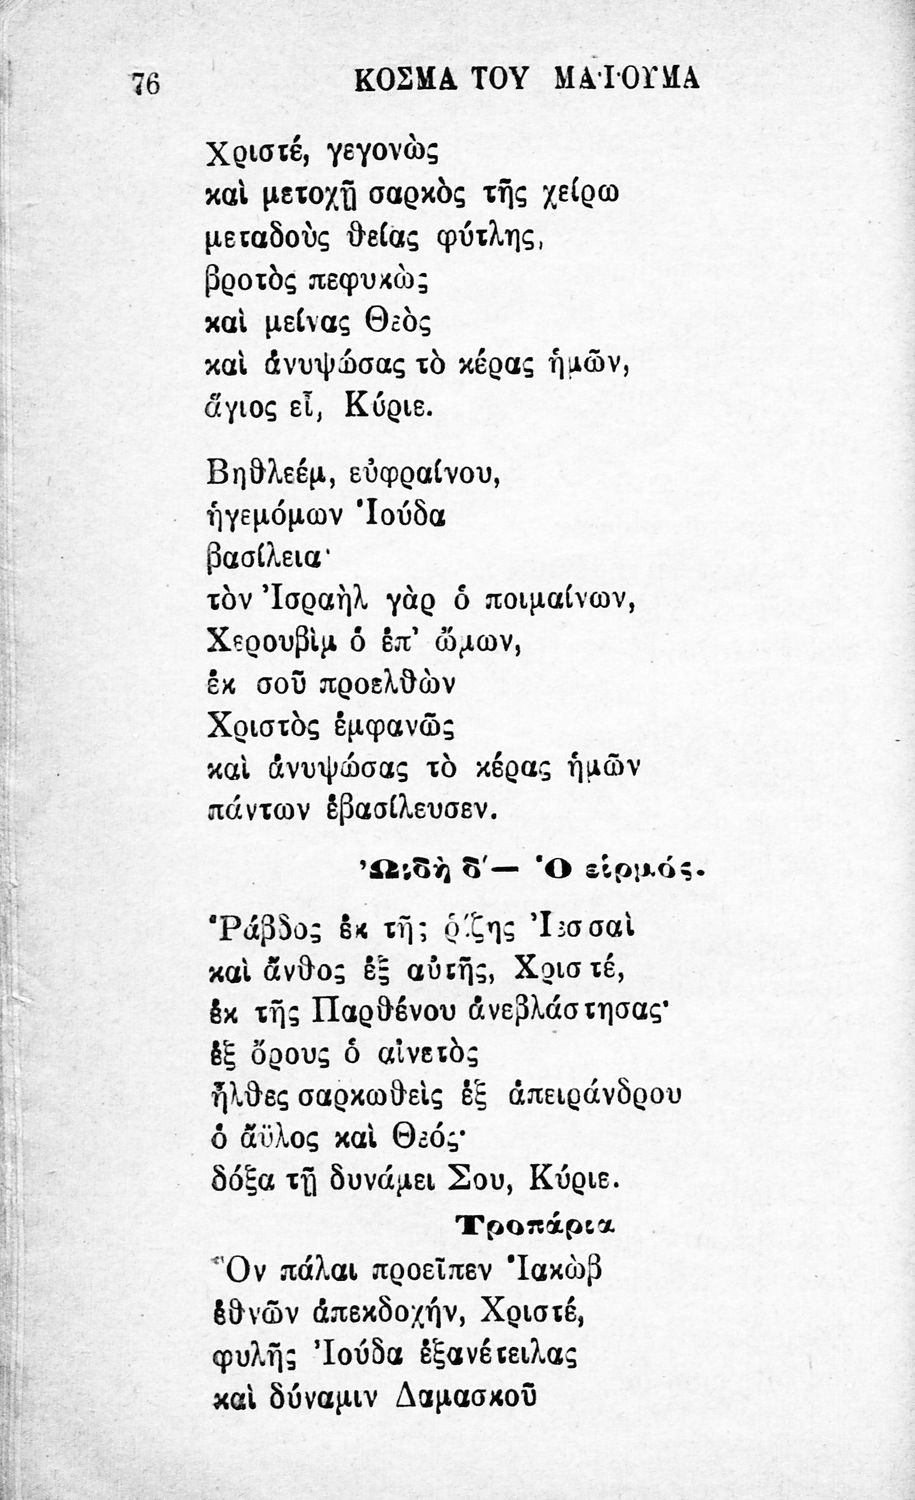 76 ΚΟΣΜΑ ΤΟΥ ΜΑ·Ι·ΟΥΜΑ
Χριστέ, γεγονὼς
καὶ μετοχῇ σαρκὸς τῆς χείρω
μεταδοὺς θείας φύτλης,
βροτὸς πεφυκὼς
καὶ μείνας Θεὸς
καὶ ἀνυψώσας τὸ κέρας ἡμῶν,
ἅγιος εἶ, Κύριε.
Βηθλεέμ, εὐφραίνου,
ἡγεμόμων Ἰούδα
βασίλεια·
τὸν Ἰσραὴλ γὰρ ὁ ποιμαίνων,
Χερουβὶμ ὁ ἐπ’ ὤμων,
ἐκ σοῦ προελθὼν
Χριστὸς ἐμφανῶς
καὶ ἀνυψώσας τὸ κέρας ἡμῶν
πάντων ἐβασίλευσεν.
Ὠιδὴ δ′— Ὁ εἱρμός.
Ῥάβδος ἐκ τῆς ῥίζης Ἰεσσαὶ
καὶ ἄνθος ἐξ αὐτῆς, Χριστέ,
ἐκ τῆς Παρθένου ἀνεβλάστησας·
ἐξ ὄρους ὁ αἰνετὸς
ἦλθες σαρκωθεὶς ἐξ ἀπειράνδρου
ὁ ἄϋλος καὶ Θεός·
δόξα τῇ δυνάμει Σου, Κύριε.
Τροπάρια
Ὃν πάλαι προεῖπεν Ἰακὼβ
ἐθνῶν ἀπεκδοχήν, Χριστέ,
φυλῆς Ἰούδα ἐξανέτειλας
καὶ δύναμιν Δαμασκοῦ